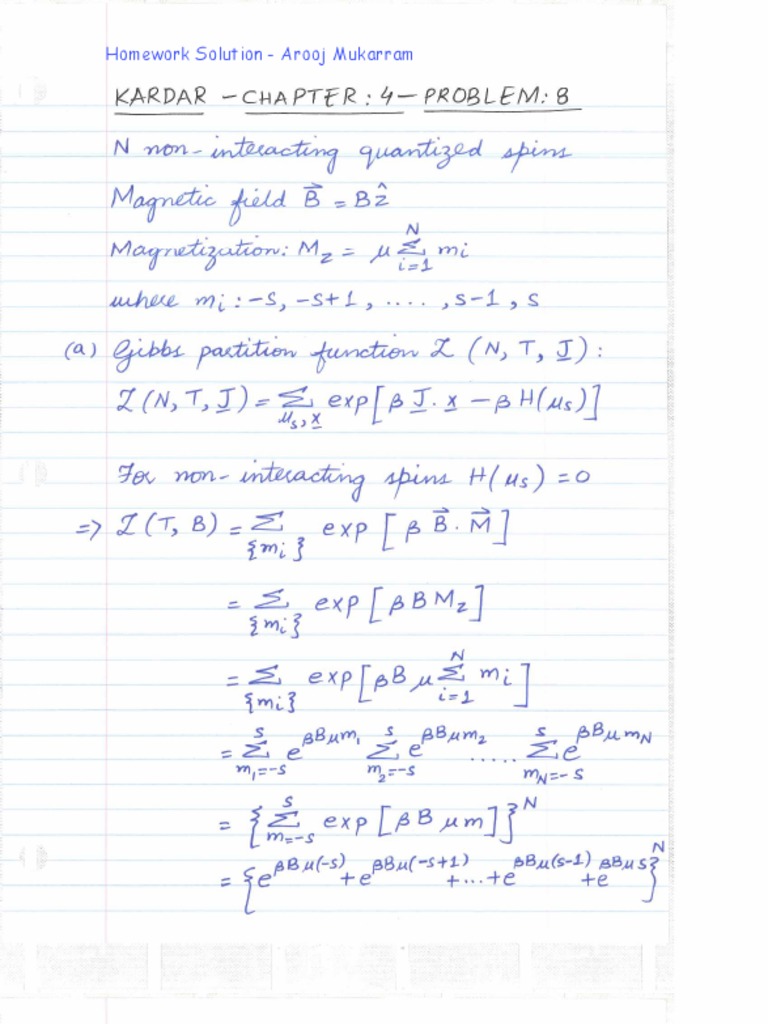 Homework Solution - Arooj Mukarram
KARDAR - CHAPTER: 4 - PROBLEM: 8
N non-interacting quantized spins
Magnetic field B⃗ = Bẑ
Magnetization: M_z = μ Σ_{i=1}^{N} m_i
where m_i : -s, -s+1, ...., s-1, s
(a) Gibbs partition function Z (N, T, J):
Z (N, T, J) = Σ_{μ_s, x} exp[β J · x - β H(μ_s)]
For non-interacting spins H(μ_s) = 0
=> Z (T, B) = Σ_{{m_i}} exp [β B⃗ · M⃗]
= Σ_{{m_i}} exp [β B M_z]
= Σ_{{m_i}} exp [β B μ Σ_{i=1}^{N} m_i]
= Σ_{m_1=-s}^{s} e^{βBμm_1} Σ_{m_2=-s}^{s} e^{βBμm_2} ..... Σ_{m_N=-s}^{s} e^{βBμm_N}
= {Σ_{m=-s}^{s} exp [β B μm]}^N
= {e^{βBμ(-s)} + e^{βBμ(-s+1)} + ... + e^{βBμ(s-1)} + e^{βBμs}}^N